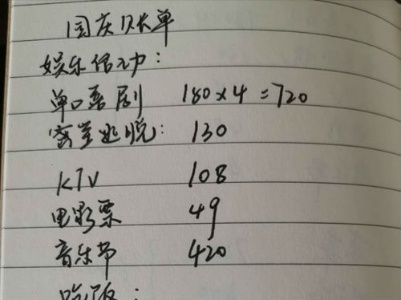 国庆账单
娱乐活动:
单口喜剧 180×4=720
密室逃脱: 130
KTV 108
电影票 49
音乐节 420
吃饭: